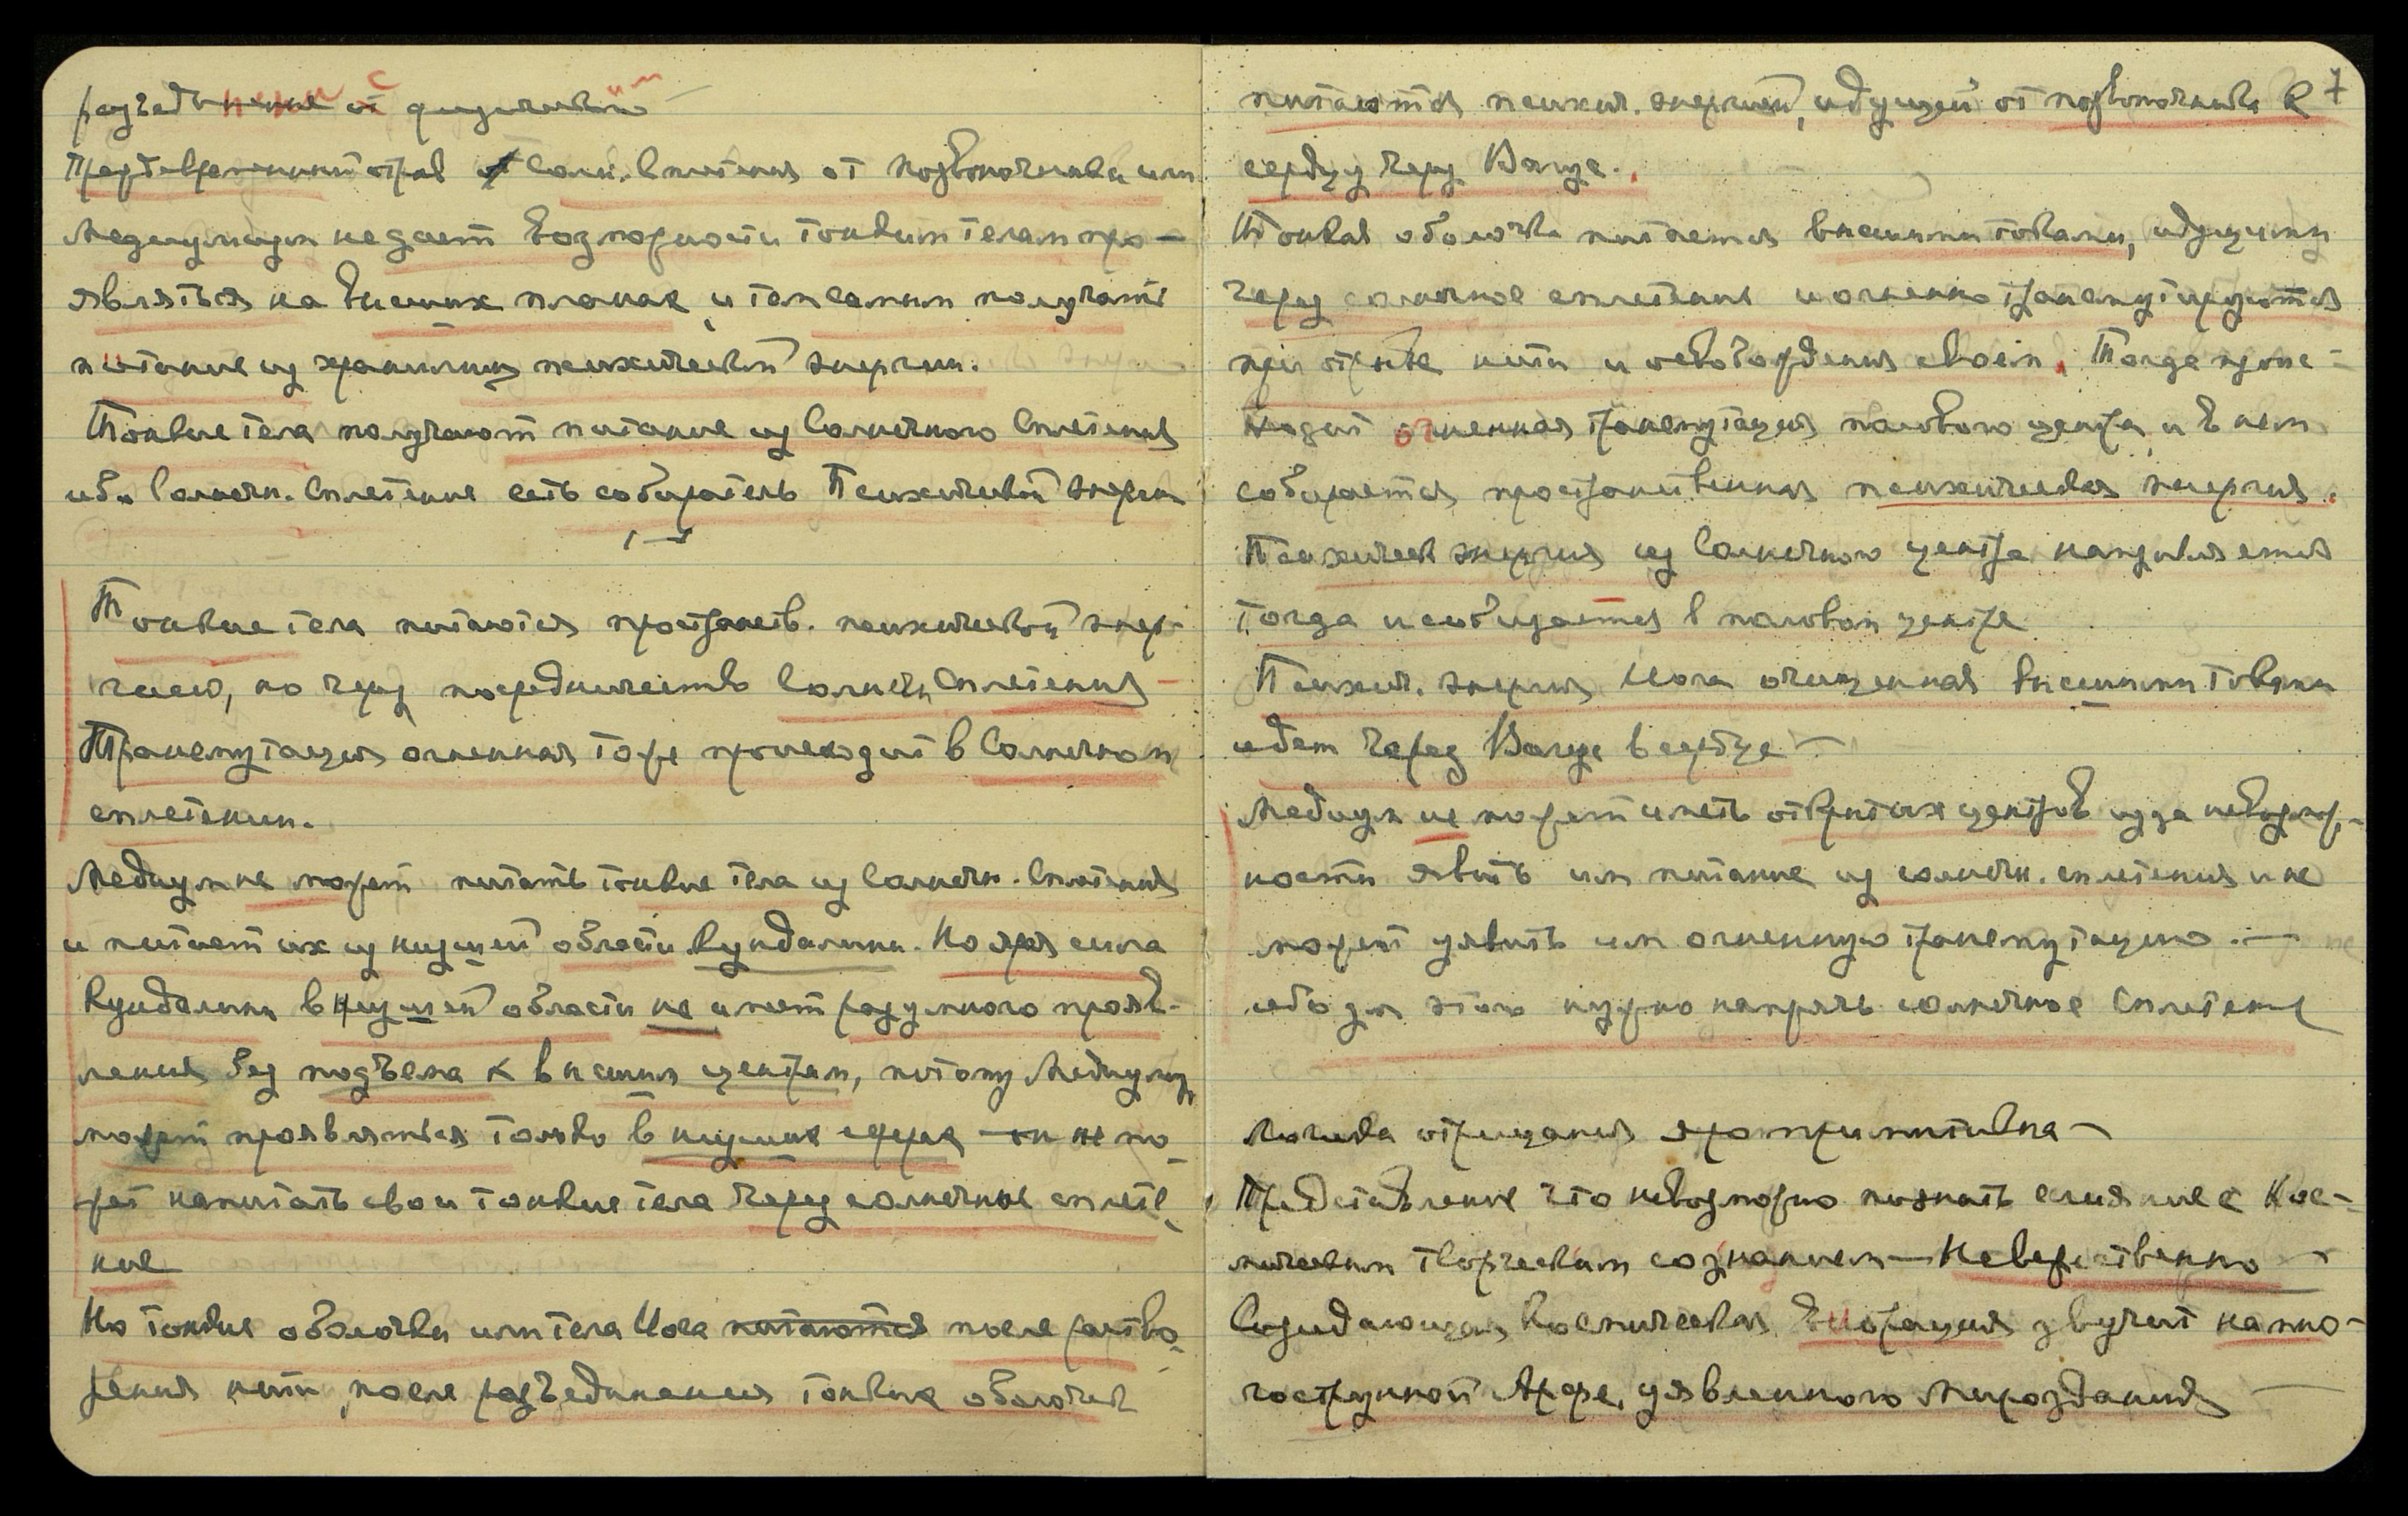 разъединение с физической —
Преждевременный отрыв Солн. Сплетения от позвоночника или
Медиумизм не дает возможности тонким телам про-
являться на высших планах и тем самым получать
питание из хранилищ психической энергии.
Тонкие тела получают питание из Солнечного Сплетения
ибо Солнечн. Сплетение есть собиратель Психической Энергии
Тонкие тела питаются пространств. психической энер-
гией, но через посредничество Солнечн Сплетения —
Трансмутация огненная тоже происходит в Солнечном
сплетении.
Медиум не может питать тонкие тела из Солнечн. Сплетения
и питает их из низшей области Кундалини. Но яра сила
Кундалини в низшей области не имеет разумного прояв-
ления без подъема к высшим центрам, потому Медиум
может проявляться только в низших сферах — он не мо-
жет напитать свои тонкие тела через солнечное сплете-
ние
Но тонкие оболочки или тела Йога питаются после раство-
рения нити, после разъединения тонких оболочек
7
питаются психич. энергией, идущей от позвоночника к
сердцу через Вагус.
Тонкая оболочка питается высшими токами, идущими
через солнечное сплетение и огненно трансмутируются
при отрыве нити и освобождения своем. Тогда проис-
ходит огненная трансмутация полового центра, и в нем
собирается пространственная психическая энергия.
Психическ энергия из Солнечного центра направляется
тогда и сообщается в половом центре
Психич. энергия Йога очищенная высшими токами
идет через Вагус в сердце —
Медиум не может иметь открытых центров из за невозмож-
ности явить им питание из солнечн. сплетения и не
может уявить им огненную трансмутацию. —
ибо для этого нужно напрячь солнечное Сплетение
Логика отрицания яро примитивна —
Представление что невозможно познать слияние с Кос-
мическим Творческим сознанием — Невежественно —
Созидающая Космическая Вибрация звучит на мно-
гострунной Арфе, уявленного Мироздания —